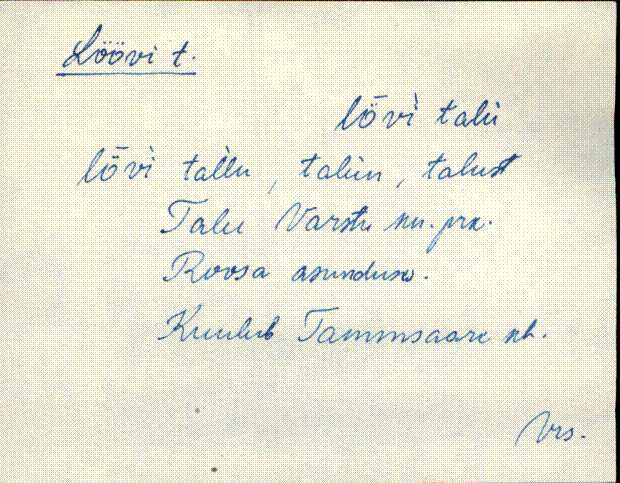 Löövi t.
lȭvì̬ talu
lȭvì̬ tallu, talun, talust
Talu Varstu kn. prk.
Roosa asunduses.
Kuulub Tammsaare kh.
Vrs.